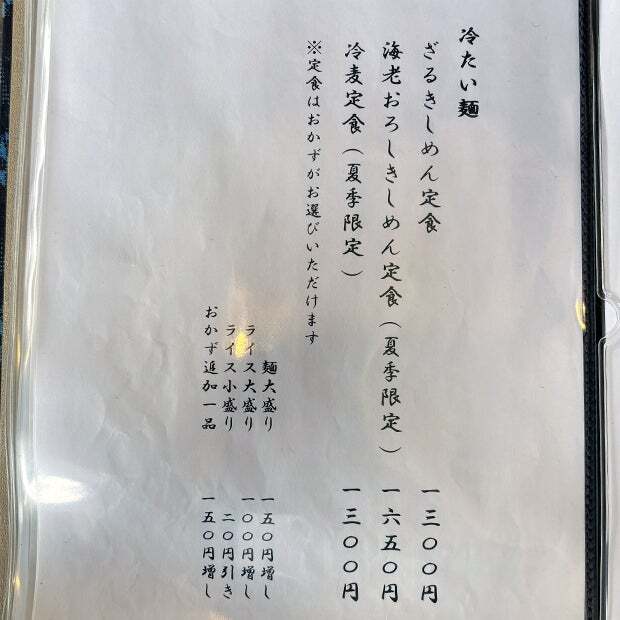 冷たい麺
ざるきしめん定食 一三〇〇円
海老おろしきしめん定食(夏季限定) 一六五〇円
冷麦定食(夏季限定) 一三〇〇円
※定食はおかずがお選びいただけます
麺大盛り 一五〇円増し
ライス大盛り 一〇〇円増し
ライス小盛り 二〇円引き
おかず追加一品 一五〇円増し